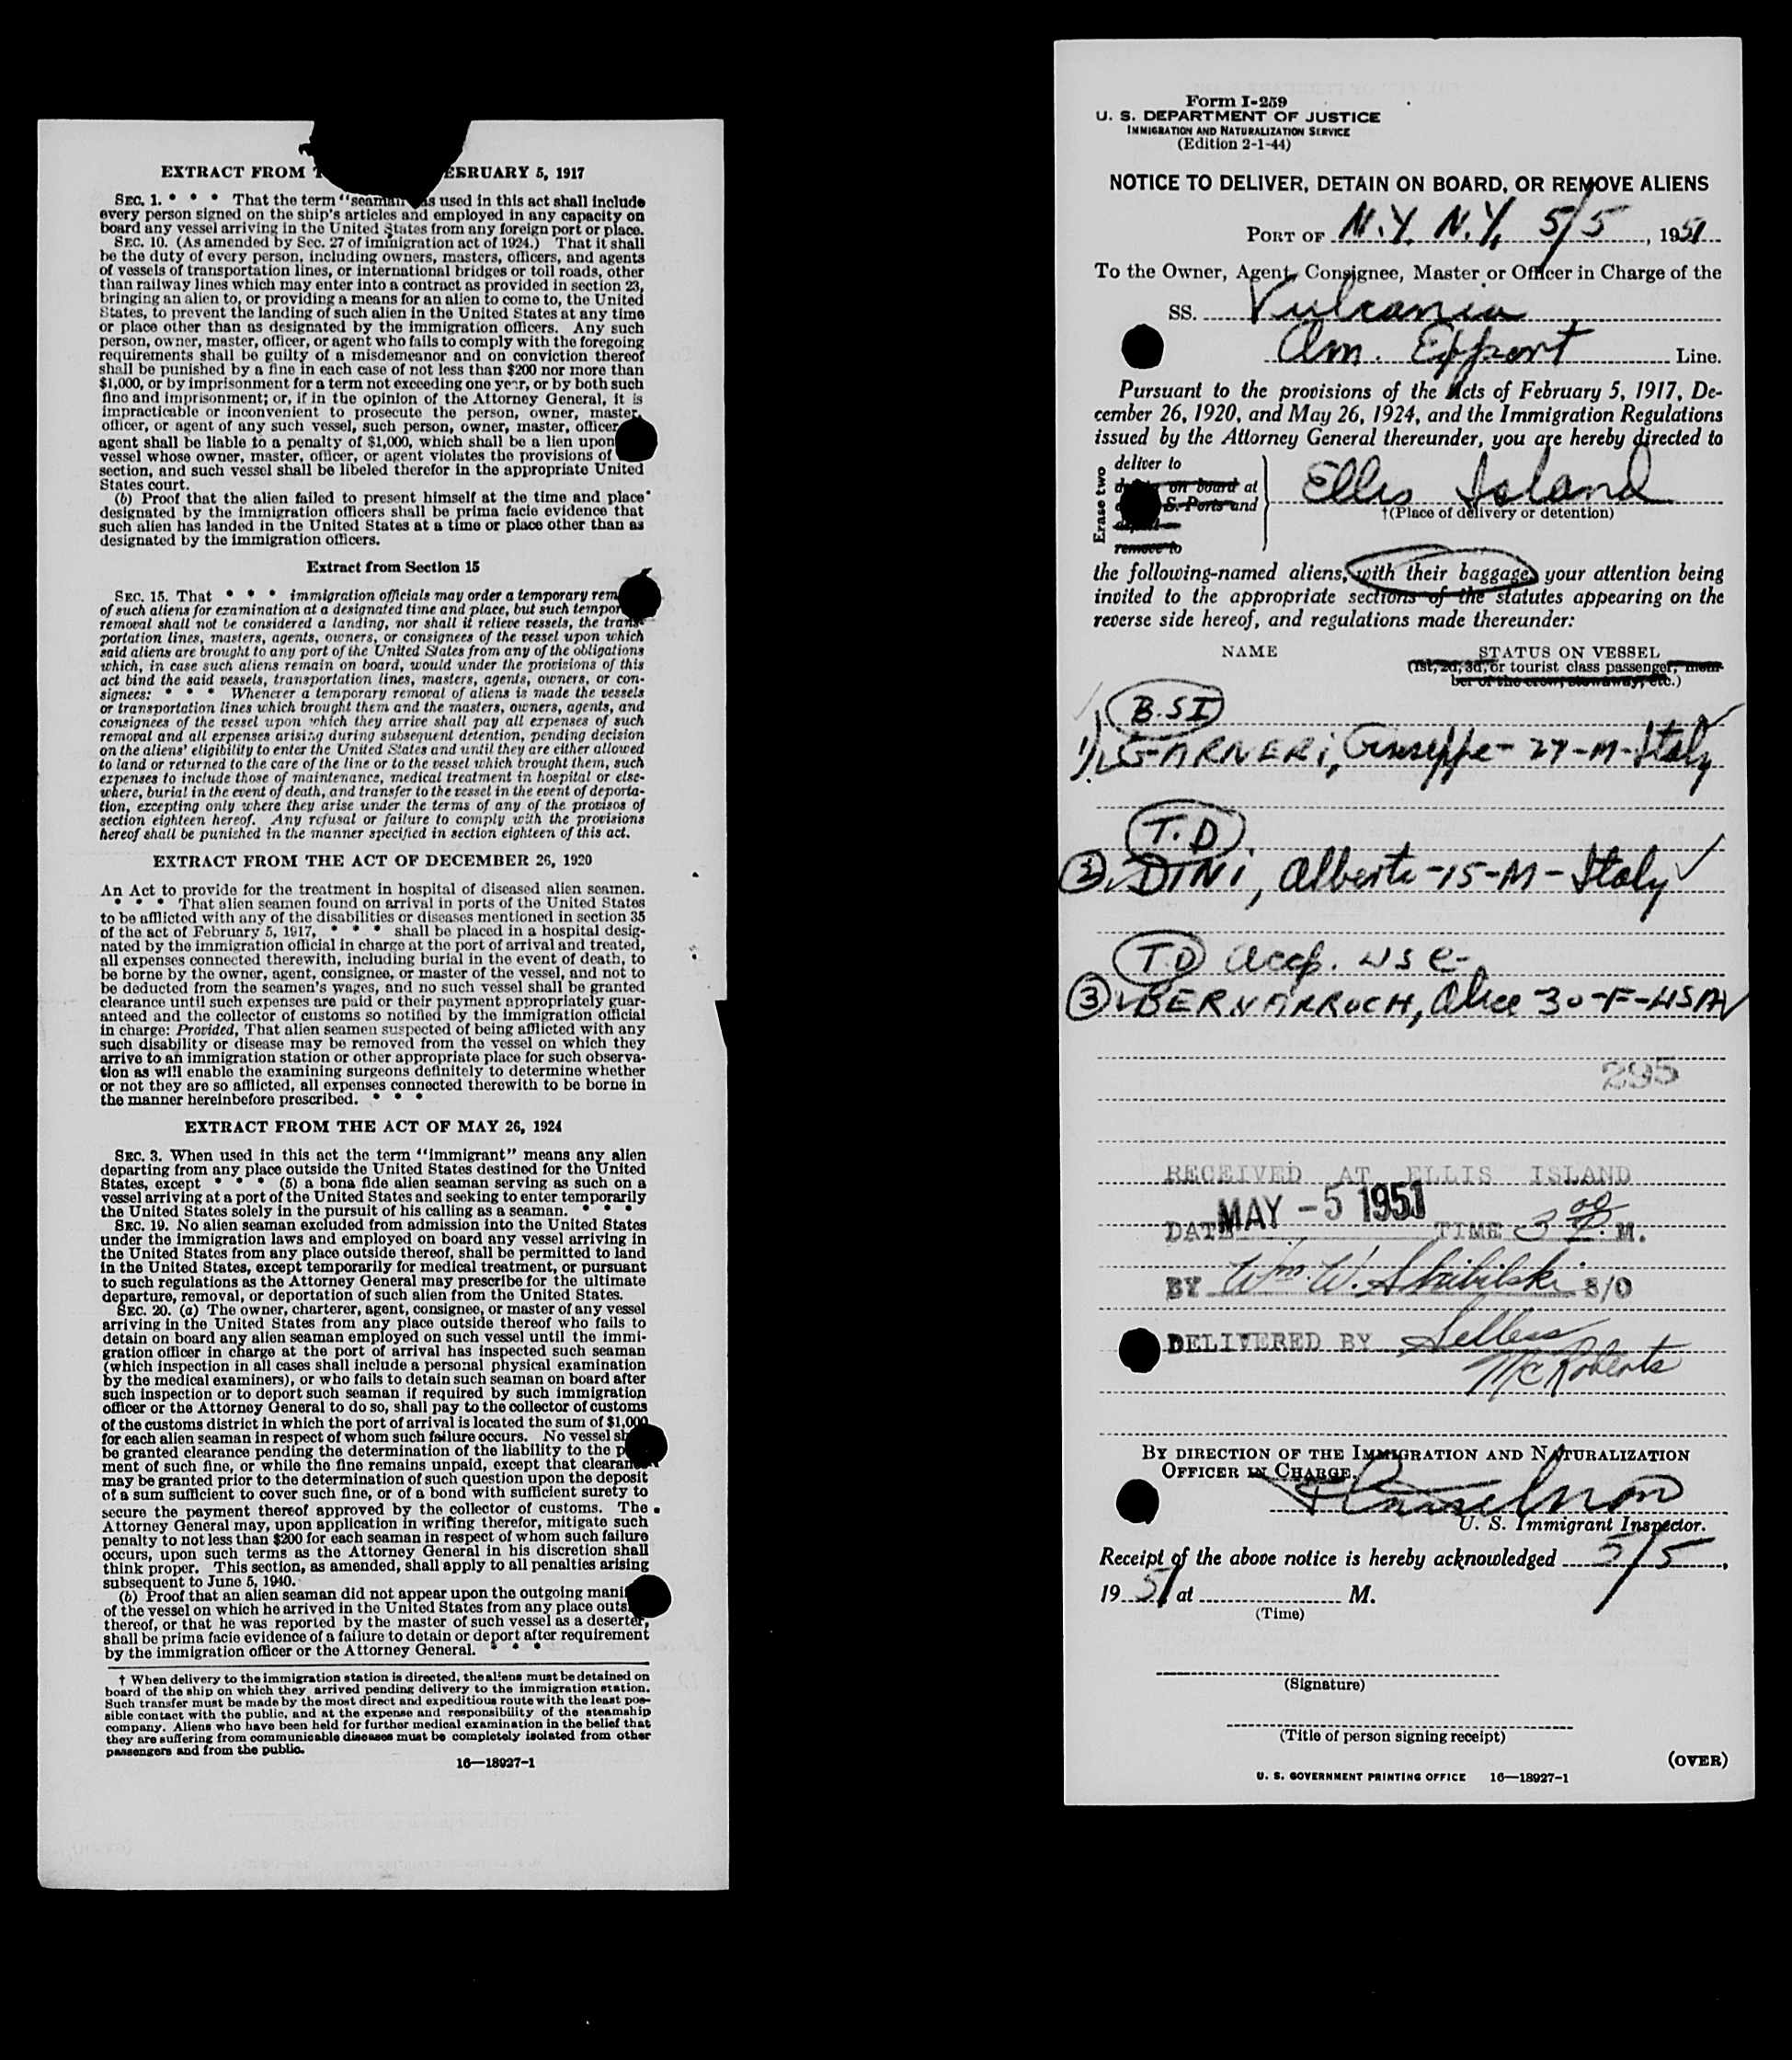 EXTRACT FROM T EBRUARY 5, 1917
SEC. 1. * * * That the term "seaman" as used in this act shall include
every person signed on the ship's articles and employed in any capacity on
board any vessel arriving in the United States from any foreign port or place.
SEC. 10. (As amended by Sec. 27 of immigration act of 1924.) That it shall
be the duty of every person, including owners, masters, officers, and agents
of vessels of transportation lines, or international bridges or toll roads, other
than railway lines which may enter into a contract as provided in section 23,
bringing an alien to, or providing a means for an alien to come to, the United
States, to prevent the landing of such alien in the United States at any time
or place other than as designated by the immigration officers. Any such
person, owner, master, officer, or agent who fails to comply with the foregoing
requirements shall be guilty of a misdemeanor and on conviction thereof
shall be punished by a fine in each case of not less than $200 nor more than
$1,000, or by imprisonment for a term not exceeding one year, or by both such
fine and imprisonment; or, if in the opinion of the Attorney General, it is
impracticable or inconvenient to prosecute the person, owner, master,
officer, or agent of any such vessel, such person, owner, master, officer,
agent shall be liable to a penalty of $1,000, which shall be a lien upon
vessel whose owner, master, officer, or agent violates the provisions of
section, and such vessel shall be libeled therefor in the appropriate United
States court.
(b) Proof that the alien failed to present himself at the time and place
designated by the immigration officers shall be prima facie evidence that
such alien has landed in the United States at a time or place other than as
designated by the immigration officers.
Extract from Section 15
SEC. 15. That * * * immigration officials may order a temporary rem
of such aliens for examination at a designated time and place, but such tempor
removal shall not be considered a landing, nor shall it relieve vessels, the trans-
portation lines, masters, agents, owners, or consignees of the vessel upon which
said aliens are brought to any port of the United States from any of the obligations
which, in case such aliens remain on board, would under the provisions of this
act bind the said vessels, transportation lines, masters, agents, owners, or con-
signees: * * * Whenever a temporary removal of aliens is made the vessels
or transportation lines which brought them and the masters, owners, agents, and
consignees of the vessel upon which they arrive shall pay all expenses of such
removal and all expenses arising during subsequent detention, pending decision
on the aliens' eligibility to enter the United States and until they are either allowed
to land or returned to the care of the line or to the vessel which brought them, such
expenses to include those of maintenance, medical treatment in hospital or else-
where, burial in the event of death, and transfer to the vessel in the event of deporta-
tion, excepting only where they arise under the terms of any of the provisos of
section eighteen hereof. Any refusal or failure to comply with the provisions
hereof shall be punished in the manner specified in section eighteen of this act.
EXTRACT FROM THE ACT OF DECEMBER 26, 1920
An Act to provide for the treatment in hospital of diseased alien seamen.
* * * That alien seamen found on arrival in ports of the United States
to be afflicted with any of the disabilities or diseases mentioned in section 35
of the act of February 5, 1917, * * * shall be placed in a hospital desig-
nated by the immigration official in charge at the port of arrival and treated,
all expenses connected therewith, including burial in the event of death, to
be borne by the owner, agent, consignee, or master of the vessel, and not to
be deducted from the seamen's wages, and no such vessel shall be granted
clearance until such expenses are paid or their payment appropriately guar-
anteed and the collector of customs so notified by the immigration official
in charge: Provided, That alien seamen suspected of being afflicted with any
such disability or disease may be removed from the vessel on which they
arrive to an immigration station or other appropriate place for such observa-
tion as will enable the examining surgeons definitely to determine whether
or not they are so afflicted, all expenses connected therewith to be borne in
the manner hereinbefore prescribed. * * *
EXTRACT FROM THE ACT OF MAY 26, 1924
SEC. 3. When used in this act the term "immigrant" means any alien
departing from any place outside the United States destined for the United
States, except * * * (5) a bona fide alien seaman serving as such on a
vessel arriving at a port of the United States and seeking to enter temporarily
the United States solely in the pursuit of his calling as a seaman. * * *
SEC. 19. No alien seaman excluded from admission into the United States
under the immigration laws and employed on board any vessel arriving in
the United States from any place outside thereof, shall be permitted to land
in the United States, except temporarily for medical treatment, or pursuant
to such regulations as the Attorney General may prescribe for the ultimate
departure, removal, or deportation of such alien from the United States.
SEC. 20. (a) The owner, charterer, agent, consignee, or master of any vessel
arriving in the United States from any place outside thereof who fails to
detain on board any alien seaman employed on such vessel until the immi-
gration officer in charge at the port of arrival has inspected such seaman
(which inspection in all cases shall include a personal physical examination
by the medical examiners), or who fails to detain such seaman on board after
such inspection or to deport such seaman if required by such immigration
officer or the Attorney General to do so, shall pay to the collector of customs
of the customs district in which the port of arrival is located the sum of $1,000
for each alien seaman in respect of whom such failure occurs. No vessel sh
be granted clearance pending the determination of the liability to the p
ment of such fine, or while the fine remains unpaid, except that clearance
may be granted prior to the determination of such question upon the deposit
of a sum sufficient to cover such fine, or of a bond with sufficient surety to
secure the payment thereof approved by the collector of customs. The
Attorney General may, upon application in writing therefor, mitigate such
penalty to not less than $200 for each seaman in respect of whom such failure
occurs, upon such terms as the Attorney General in his discretion shall
think proper. This section, as amended, shall apply to all penalties arising
subsequent to June 5, 1940.
(b) Proof that an alien seaman did not appear upon the outgoing mani
of the vessel on which he arrived in the United States from any place outs
thereof, or that he was reported by the master of such vessel as a deserter,
shall be prima facie evidence of a failure to detain or deport after requirement
by the immigration officer or the Attorney General. * * *
† When delivery to the immigration station is directed, the aliens must be detained on
board of the ship on which they arrived pending delivery to the immigration station.
Such transfer must be made by the most direct and expeditious route with the least pos-
sible contact with the public, and at the expense and responsibility of the steamship
company. Aliens who have been held for further medical examination in the belief that
they are suffering from communicable diseases must be completely isolated from other
passengers and from the public.
16—18927-1
Form I-259
U. S. DEPARTMENT OF JUSTICE
IMMIGRATION AND NATURALIZATION SERVICE
(Edition 2-1-44)
NOTICE TO DELIVER, DETAIN ON BOARD, OR REMOVE ALIENS
PORT OF N.Y. N.Y. 5/5, 1951
To the Owner, Agent, Consignee, Master or Officer in Charge of the
SS. Vulcania
Am. Export Line.
Pursuant to the provisions of the Acts of February 5, 1917, De-
cember 26, 1920, and May 26, 1924, and the Immigration Regulations
issued by the Attorney General thereunder, you are hereby directed to
Erase two
deliver to
on board at
S. Ports and
remove to
Ellis Island
†(Place of delivery or detention)
the following-named aliens, with their baggage, your attention being
invited to the appropriate sections of the statutes appearing on the
reverse side hereof, and regulations made thereunder:
NAME STATUS ON VESSEL
(1st, 2d, 3d, or tourist class passenger, mem-
ber of the crew, stowaway, etc.)
B.S.I
1) GARNERi, Giuseppe - 27-M-Italy
T.D
2 DiNi, Alberto-15-M-Italy
T.D accp. USC-
3 BERNARROCH, Alice 30-F-USA
295
RECEIVED AT ELLIS ISLAND
DATE MAY -5 1951 TIME 3 00 P. M.
BY Wm. W. Skibilski S/O
DELIVERED BY Sellers
McRoberts
BY DIRECTION OF THE IMMIGRATION AND NATURALIZATION
OFFICER IN CHARGE.
U. S. Immigrant Inspector.
Receipt of the above notice is hereby acknowledged 5/5,
1951 at M.
(Time)
(Signature)
(Title of person signing receipt)
(OVER)
U. S. GOVERNMENT PRINTING OFFICE 16—18927-1